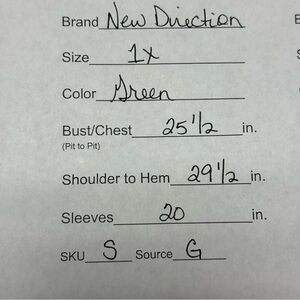 Brand New Direction
Size 1X
Color Green
Bust/Chest 25 1/2 in.
(Pit to Pit)
Shoulder to Hem 29 1/2 in.
Sleeves 20 in.
SKU S Source G